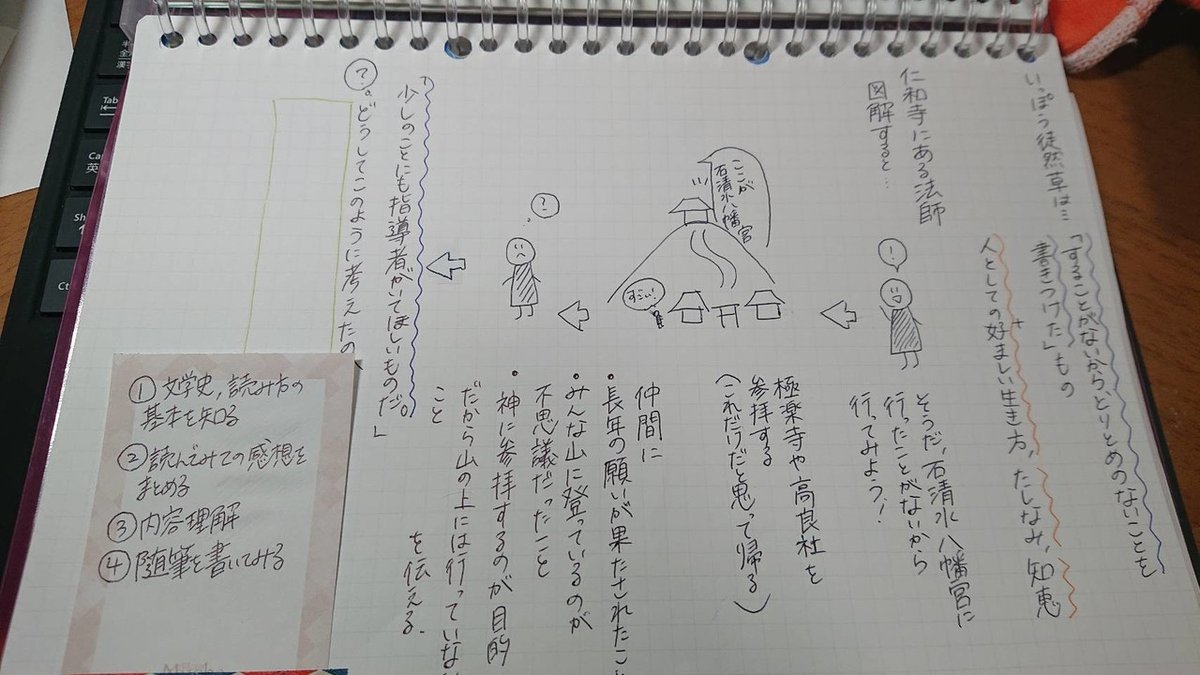 いっぽう徒然草は…
「することがないから、とりとめのないことを
書きつけた」もの
+
人としての好ましい生き方，たしなみ，知恵
仁和寺にある法師
図解すると…
！
そうだ，石清水八幡宮に
行ったことがないから
行ってみよう！
ここが
石清水八幡宮
すごい！
極楽寺や高良社を
参拝する
（これだけだと思って帰る）
？
仲間に
・長年の願いが果たされたこと
・みんな山に登っているのが
不思議だったこと
・神に参拝するのが目的
だから山の上には行っていない
こと
を伝える．
「少しのことにも指導者がいてほしいものだ。」
？。どうしてこのように考えたの
①文学史，読み方の
基本を知る
②読んでみての感想を
まとめる
③内容理解
④随筆を書いてみる
全
漢字
Tab
英